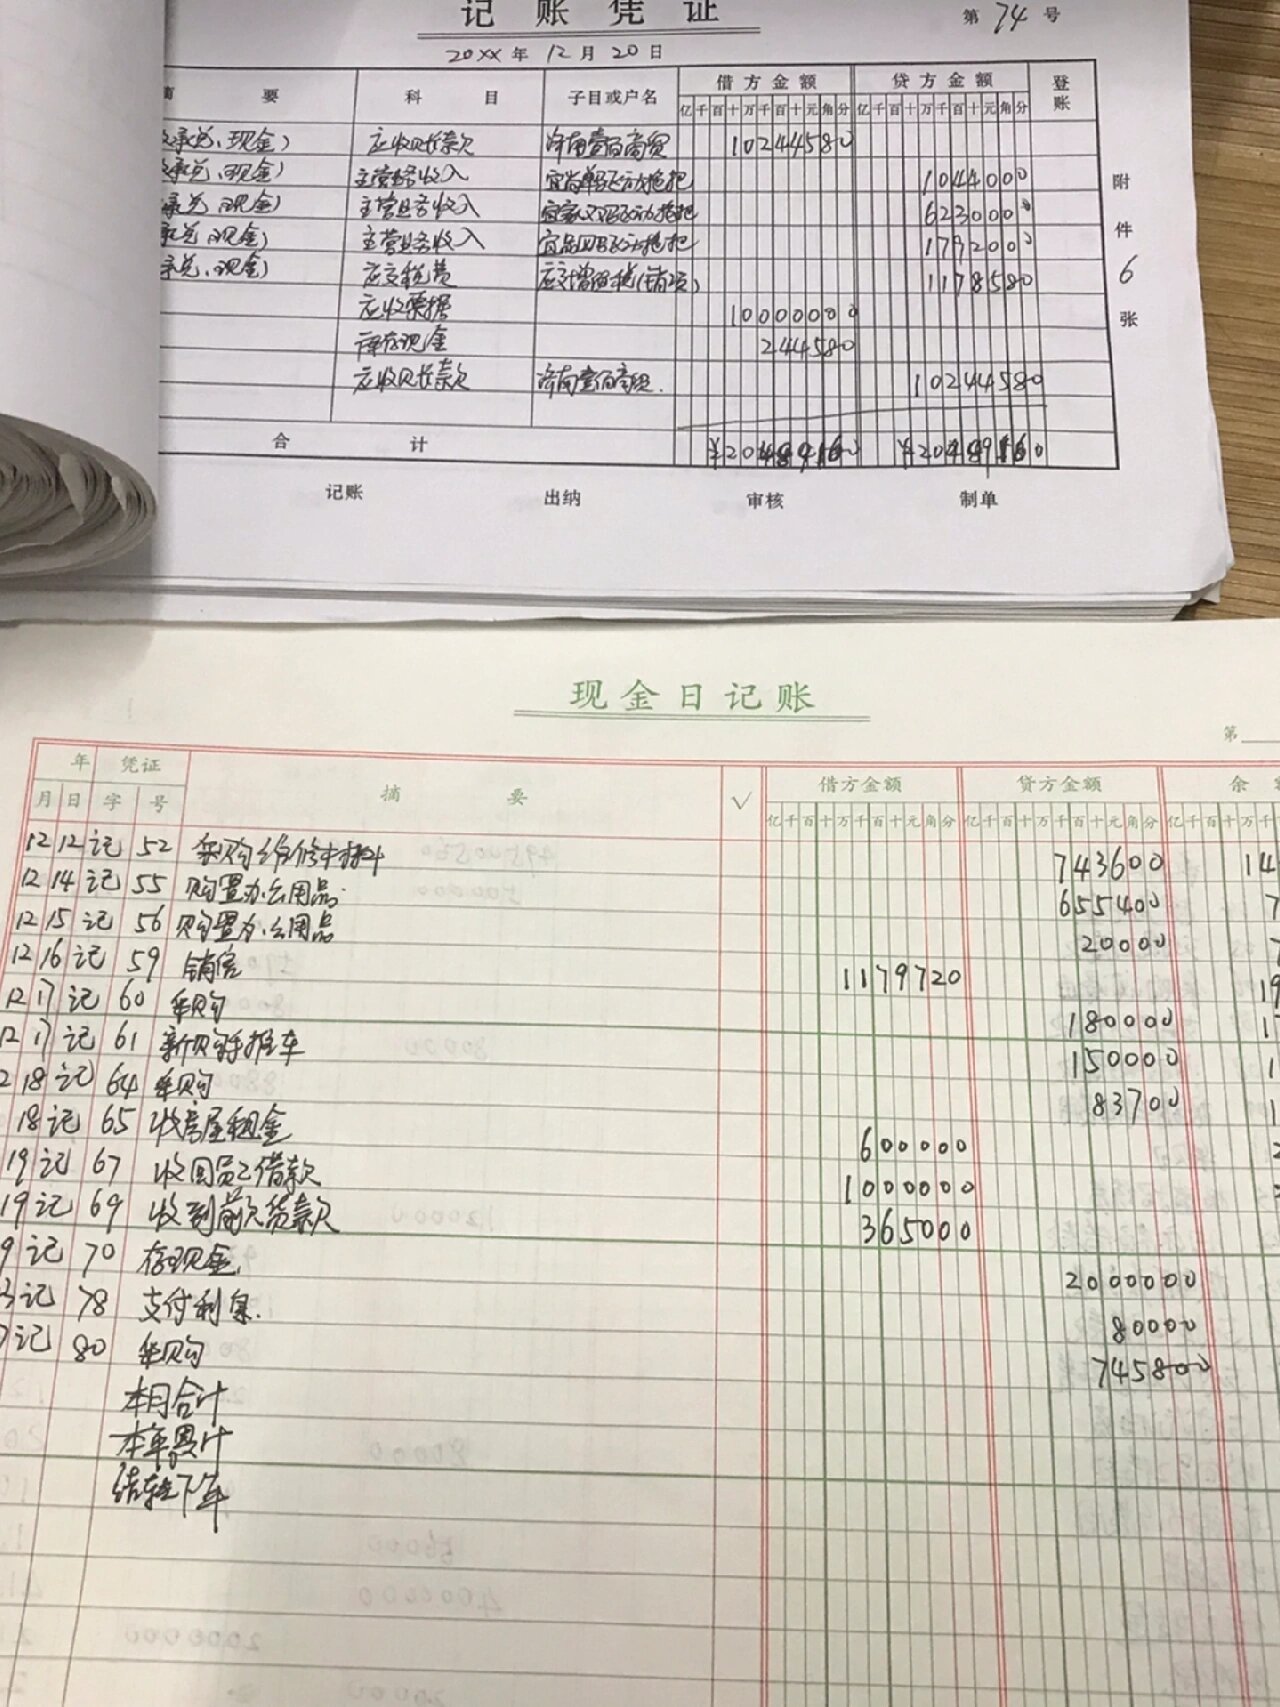 记账凭证 第 74 号
20XX 年 12 月 20 日
要 科目 子目或户名 借方金额 贷方金额 登账
亿千百十万千百十元角分 亿千百十万千百十元角分
承兑、现金) 应收账款 济南壹百商贸 10244580
承兑、现金) 主营业务收入 1044000
承兑、现金) 主营业务收入 6230000
承兑、现金) 主营业务收入 1792000
承兑、现金) 应交税费 应交增值税(销项) 1178580
应收票据 10000000
库存现金 244580
应收账款 济南壹百商贸. 10244580
合计 ¥20489160 ¥20489160
附件 6 张
记账 出纳 审核 制单
现金日记账
第
年 凭证 摘要 √ 借方金额 贷方金额 余
月 日 字 号 亿千百十万千百十元角分 亿千百十万千百十元角分 亿千百十万千
12 12 记 52 采购维修材料 743600 14
12 14 记 55 购置办公用品. 655400 7
12 15 记 56 购置办公用品 20000 7
12 16 记 59 销售 1179720 19
12 17 记 60 采购 180000 17
12 17 记 61 新购手推车 150000 1
18 记 64 采购 83700 1
18 记 65 收房屋租金 600000 2
19 记 67 收回员工借款 1000000
19 记 69 收到前欠货款 365000
9 记 70 存现金 2000000
3 记 78 支付利息. 80000
7 记 80 采购 745800
本月合计
本年累计
结转下年